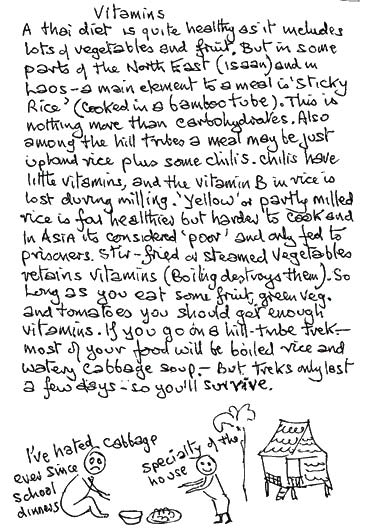 Vitamins
A thai diet is quite healthy as it includes
lots of vegetables and fruit. But in some
parts of the North East (Isaan) and in
Laos - a main element to a meal is 'Sticky
Rice' (Cooked in a bamboo tube). This is
nothing more than carbohydrates. Also
among the hill tribes a meal may be just
upland rice plus some chilis. chilis have
little vitamins, and the vitamin B in rice is
lost during milling. 'Yellow' or partly milled
rice is far healthier but harder to cook and
In Asia its considered 'poor' and only fed to
prisoners. Stir-fried or steamed vegetables
retains vitamins (Boiling destroys them). So
long as you eat some fruit, green veg.
and tomatoes you should get enough
vitamins. If you go on a hill-tribe trek -
most of your food will be boiled rice and
watery cabbage soup. - But treks only last
a few days - so you'll survive.
I've hated cabbage
ever since
school
dinners
specialty of the
house